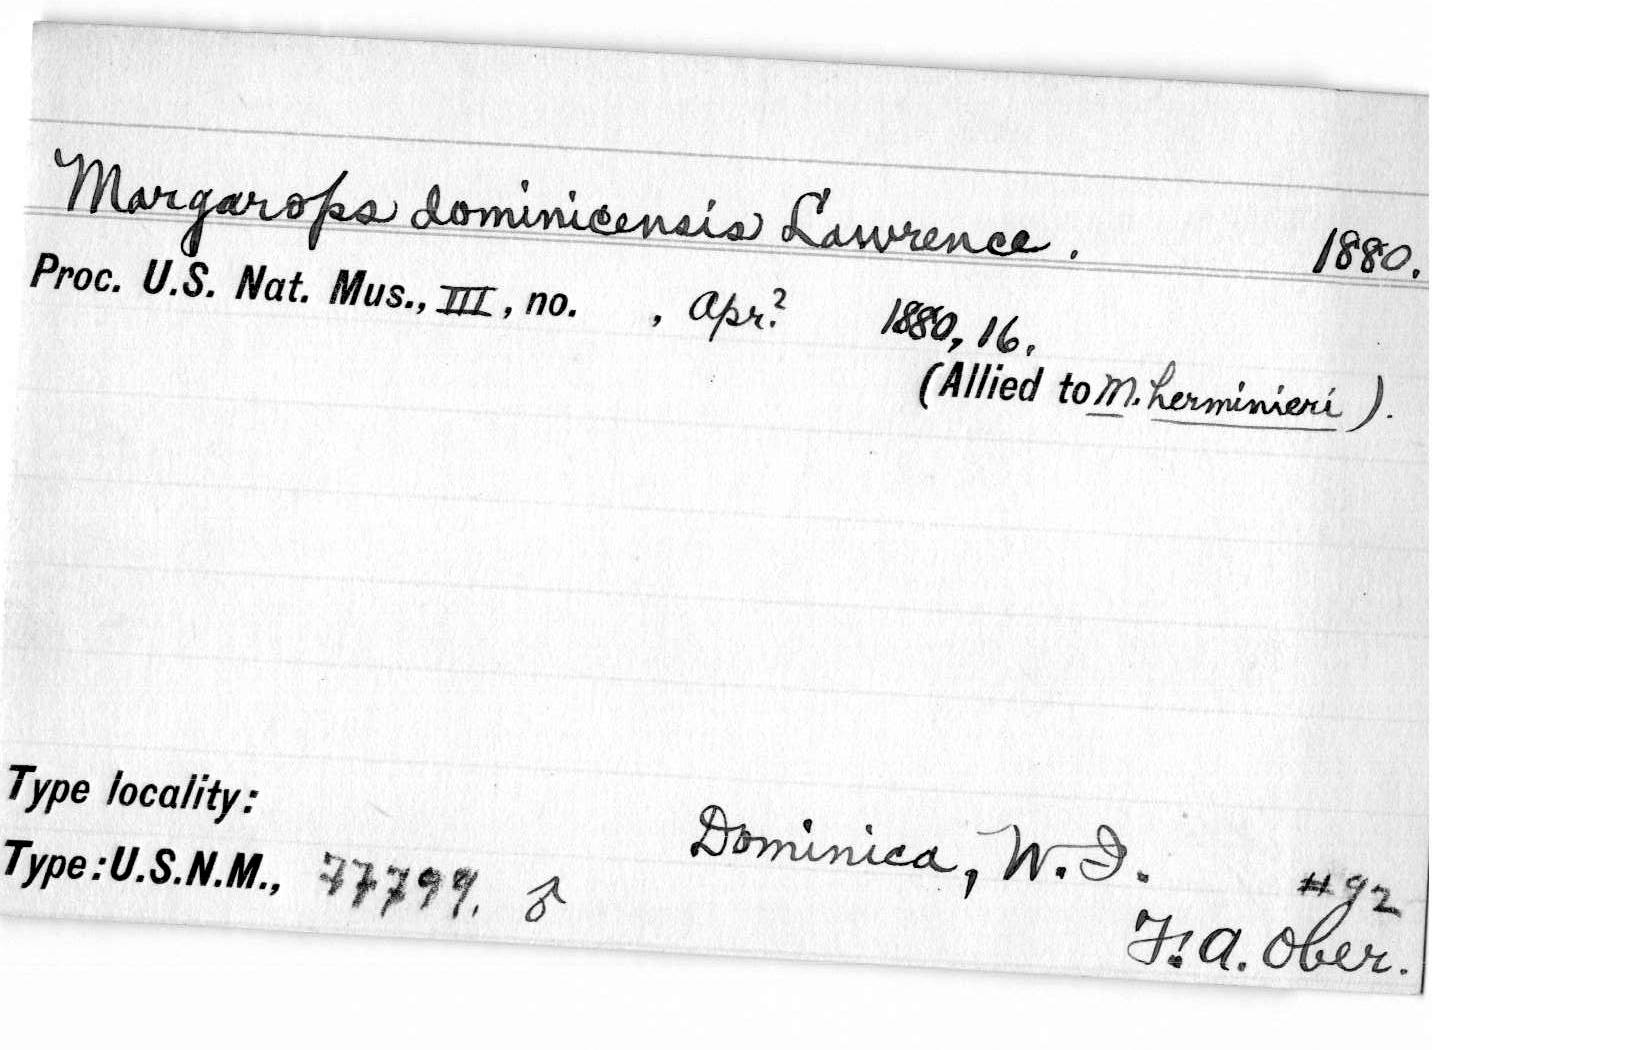 Margarops dominicensis Lawrence. 1880.
Proc. U.S. Nat. Mus., III, no. , Apr.? 1880, 16.
(Allied to M. herminieri).
Type locality:
Dominica, W.I.
Type: U.S.N.M., 77799. ♂ #92
F. A. Ober.